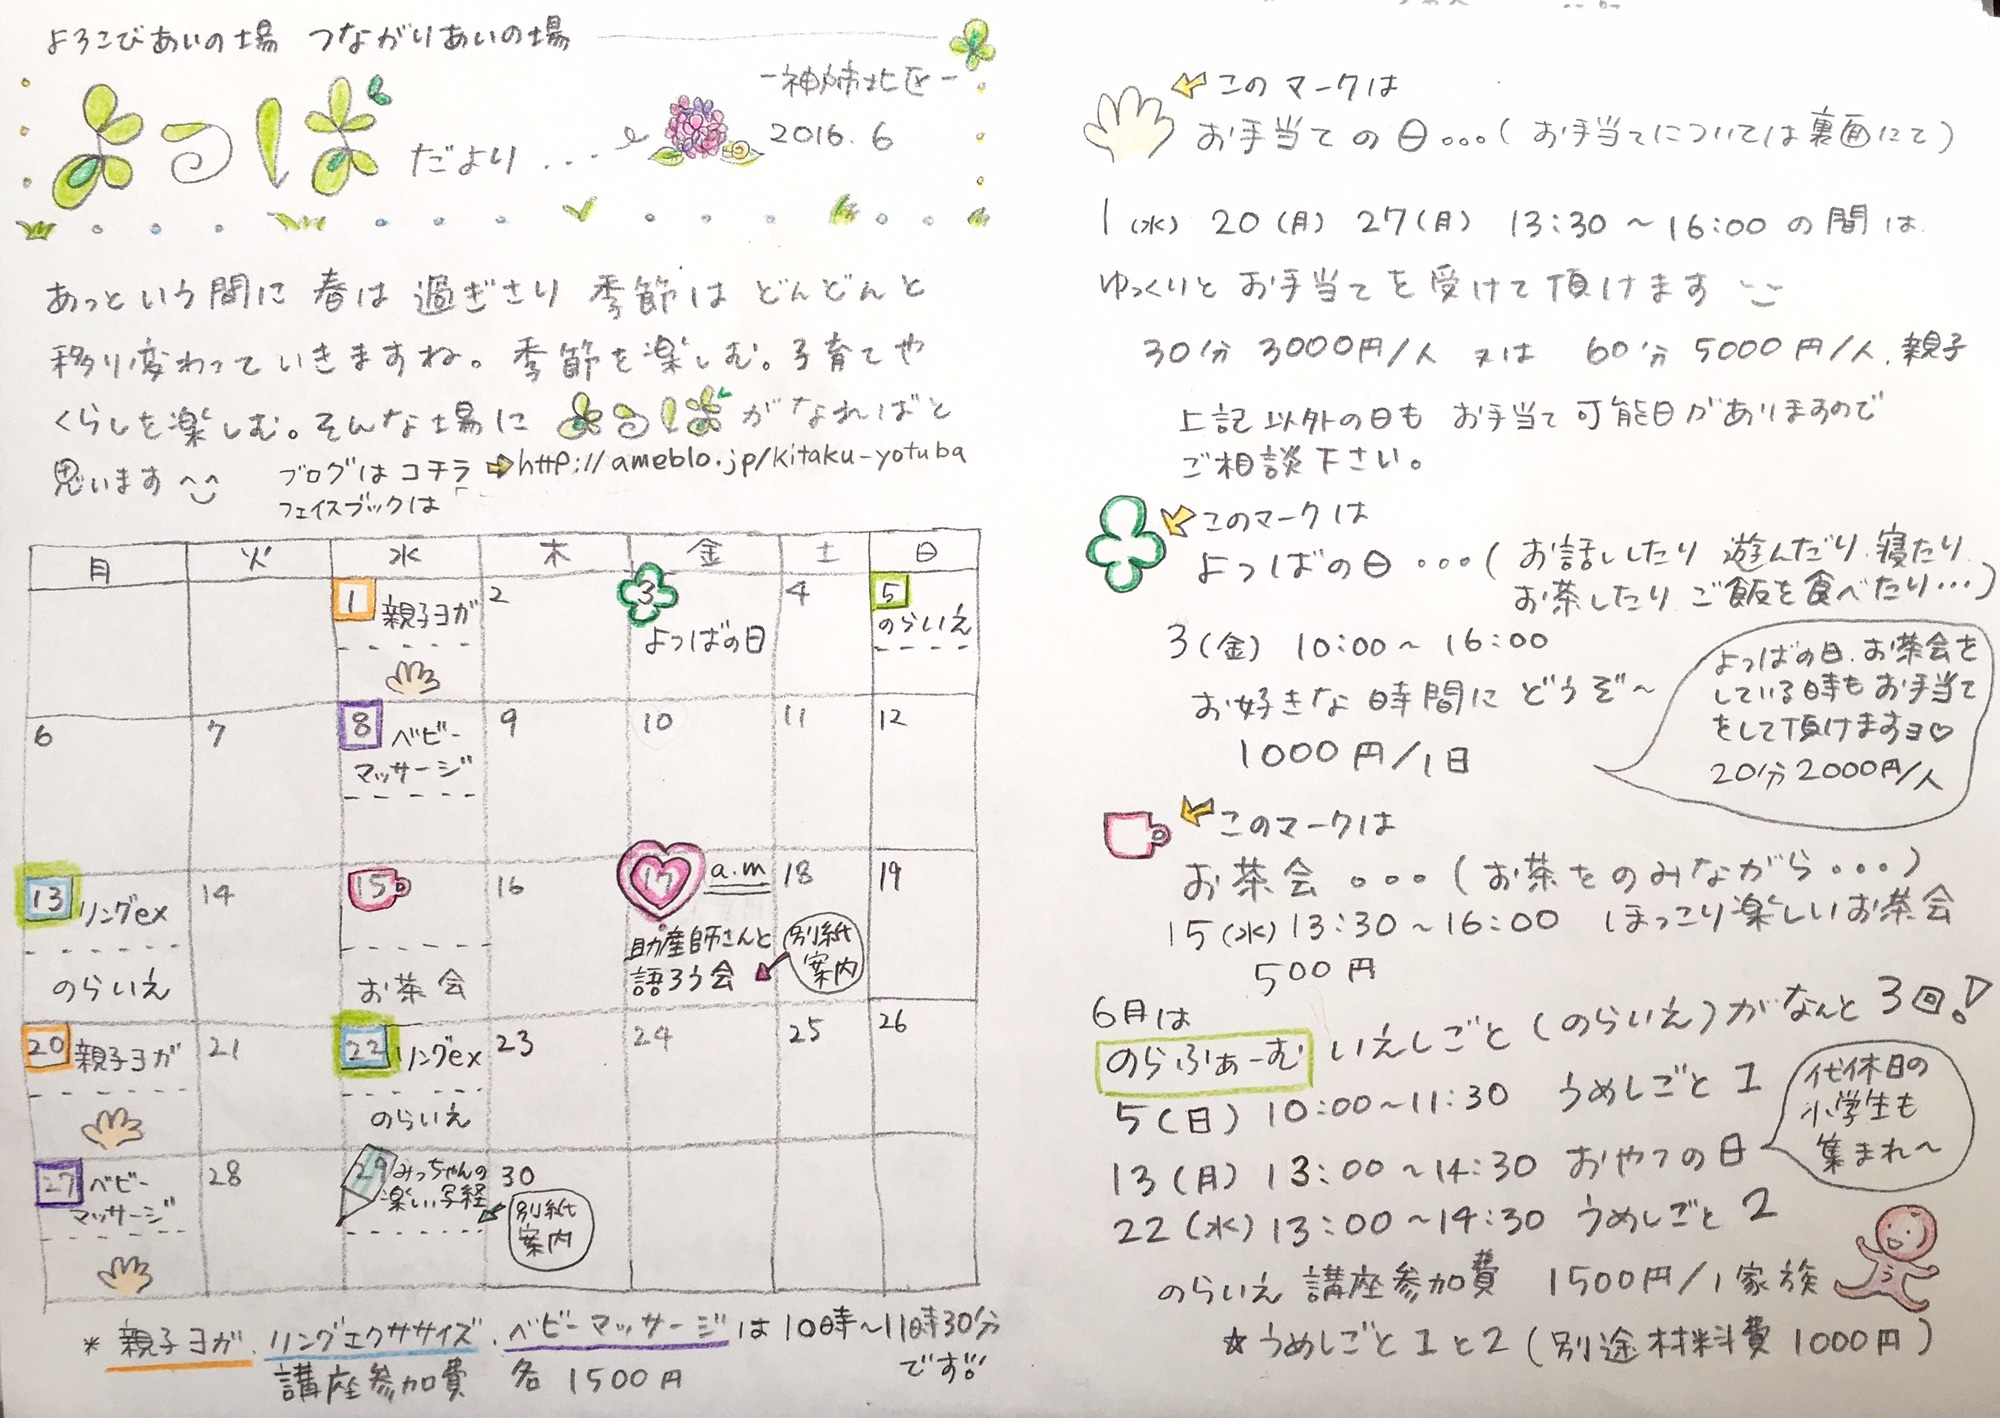 よろこびあいの場 つながりあいの場
よつば だより...
-神姉北区-
2016.6
あっという間に 春は 過ぎさり 季節は どんどんと
移り変わっていきますね。季節を楽しむ。子育てや
くらしを楽しむ。そんな場に よつば がなればと
思います
ブログは コチラ ➡http://ameblo.jp/kitaku-yotuba
フェイスブックは
月 火 水 木 金 土 日
1 親子ヨガ
2
3 よつばの日
4
5 のらいえ
6
7
8 ベビー
マッサージ
9
10
11
12
13 リングex
のらいえ
14
15
お茶会
16
17 a.m
助産師さんと
語ろう会
別紙
案内
18
19
20 親子ヨガ
21
22 リングex
のらいえ
23
24
25
26
27 ベビー
マッサージ
28
29 みっちゃんの
楽しい写経
別紙
案内
30
* 親子ヨガ、リングエクササイズ、ベビーマッサージは 10時~11時30分
です!!
講座参加費 各 1500円
このマークは
お手当ての日...(お手当てについては裏面にて)
1(水) 20(月) 27(月) 13:30~16:00の間は
ゆっくりと お手当てを受けて頂けます
30分 3000円/人 又は 60分 5000円/人、親子
上記以外の日も お手当て可能日がありますので
ご相談下さい。
このマークは
よつばの日...(お話ししたり 遊んだり、寝たり
お茶したり ご飯を食べたり...)
3(金) 10:00~16:00
お好きな時間に どうぞ~
1000円/1日
よつばの日、お茶会を
している時もお手当て
をして頂けますヨ♡
20分2000円/人
このマークは
お茶会...(お茶をのみながら...)
15(水)13:30~16:00 ほっこり楽しいお茶会
500円
6月は
のらふぁーむ いえしごと(のらいえ)がなんと3回!
5(日) 10:00~11:30 うめしごと1
13(月) 13:00~14:30 おやつの日
22(水) 13:00~14:30 うめしごと2
代休日の
小学生も
集まれ~
のらいえ 講座参加費 1500円/1家族
☆うめしごと1と2(別途材料費1000円)